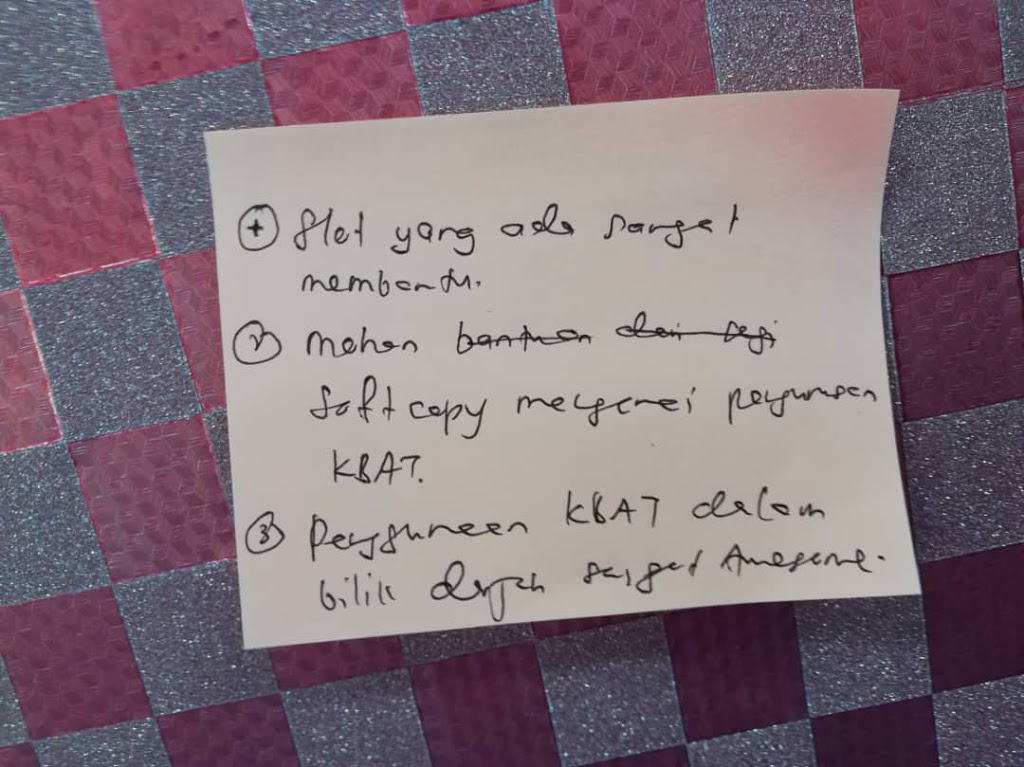 ① Slot yang ada sangat
membantu.
② Mohon bantuan dari segi
Softcopy mengenai pengurusan
KBAT.
③ Penggunaan KBAT dalam
bilik darjah sangat Awesome.